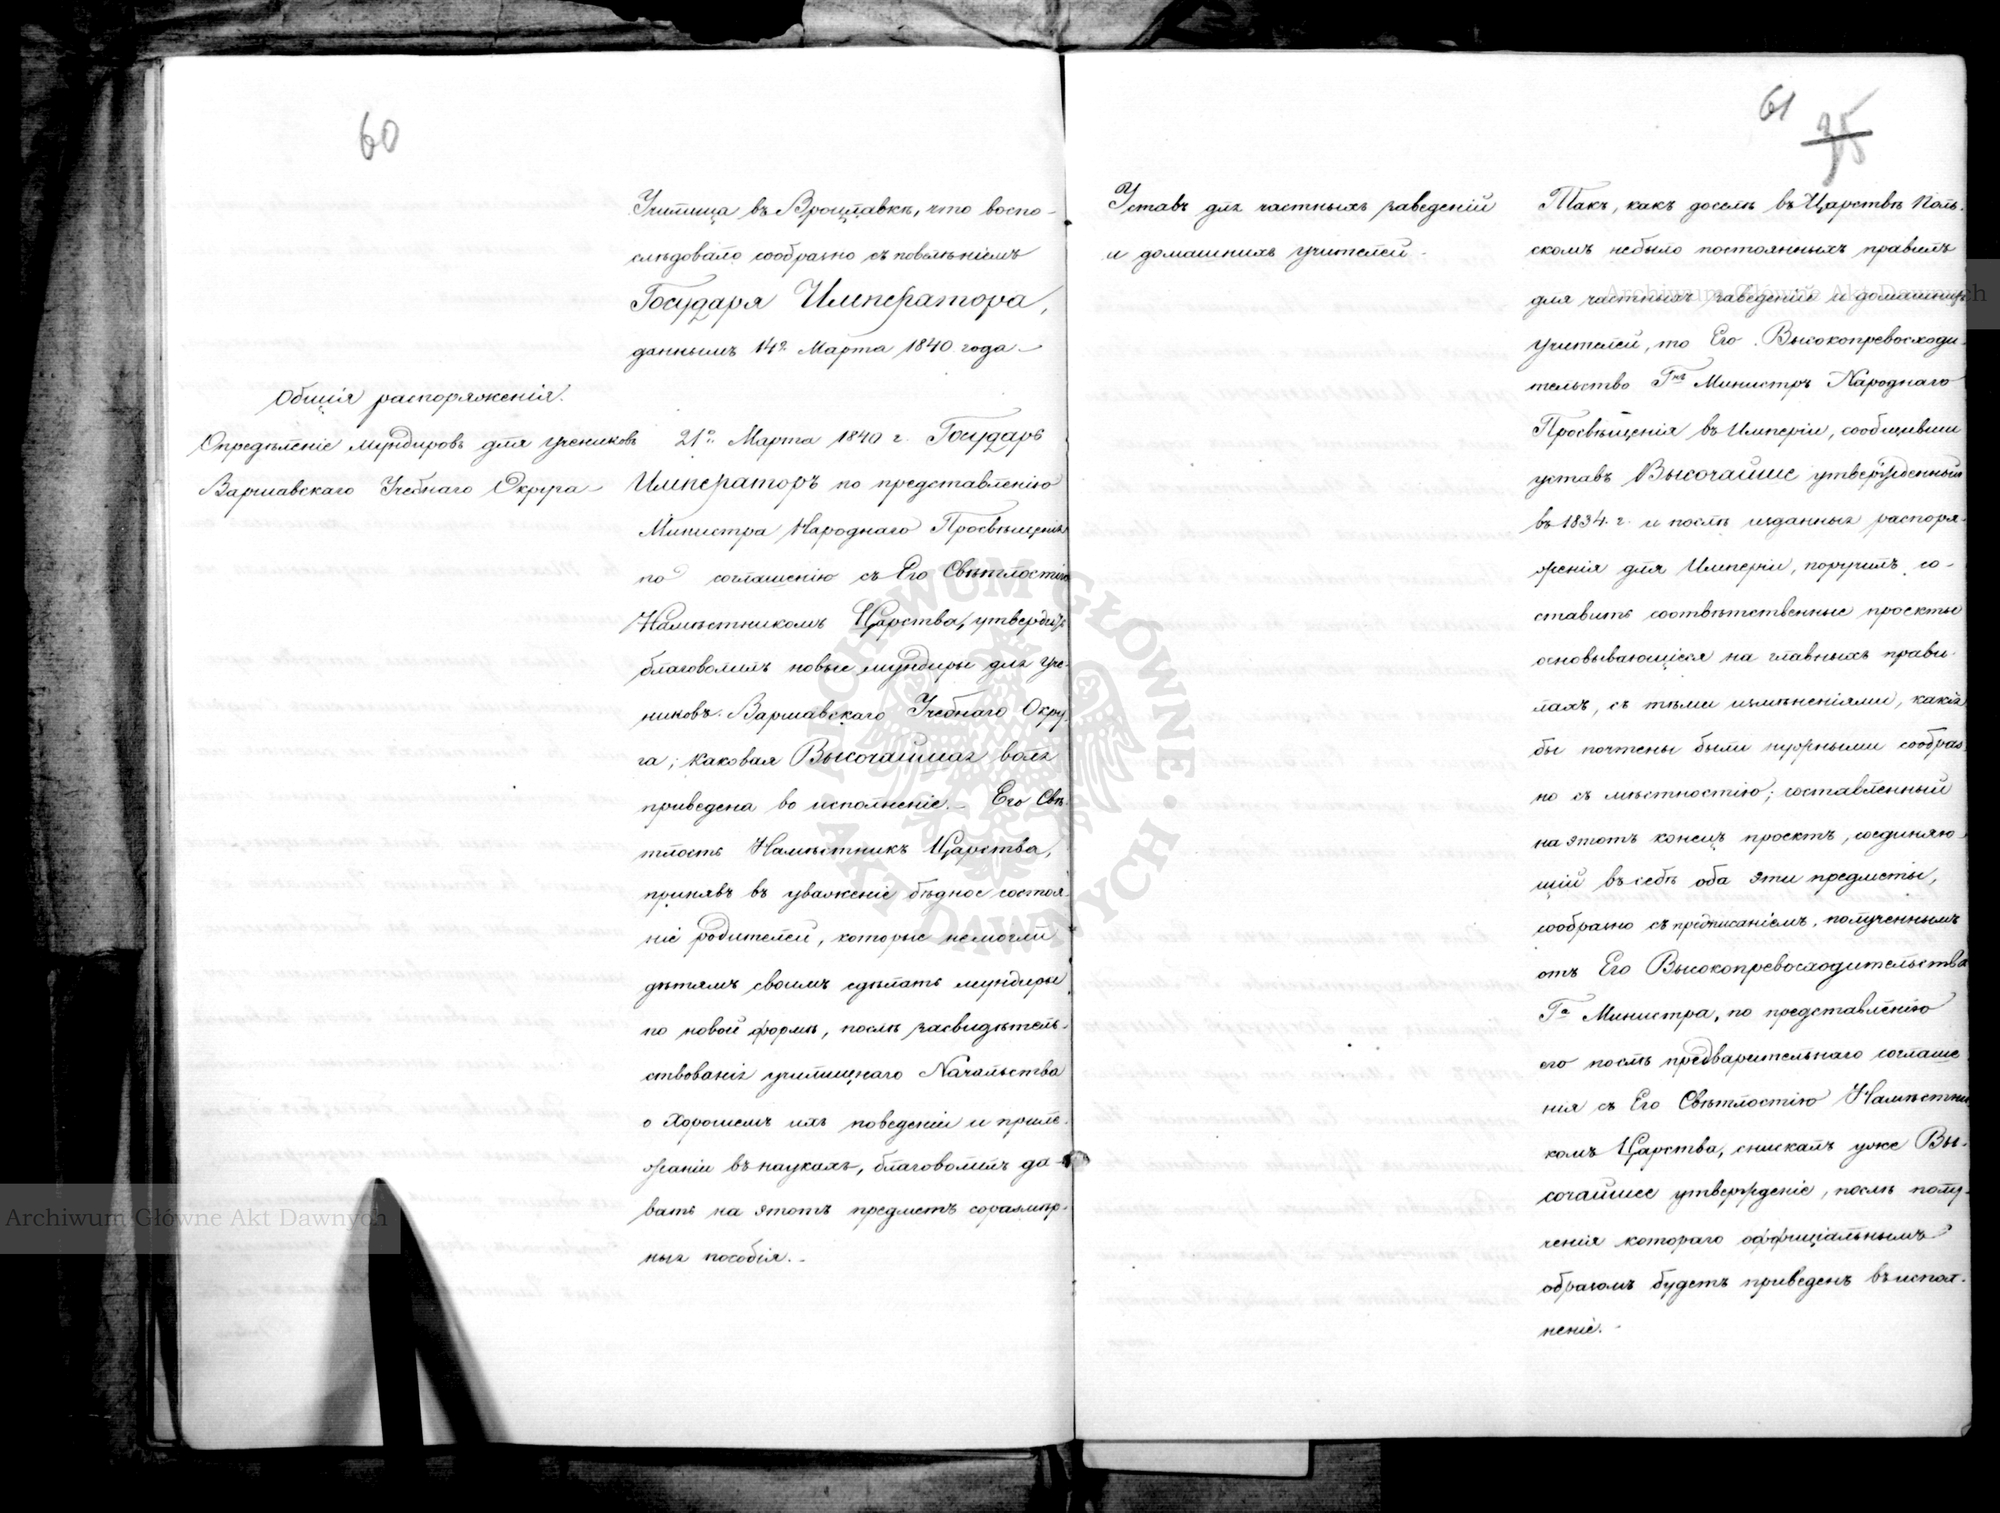 60
Училища въ Вроцлавкѣ, что воспо-
слѣдовало сообразно съ повелѣніемъ
Государя Императора,
даннымъ 14го Марта 1840 года.
Общія распоряженія.
Опредѣленіе мундировъ для учениковъ
Варшавскаго Учебнаго Округа
21го Марта 1840 г. Государь
Императоръ по представленію
Министра Народнаго Просвѣщенія
по соглашенію съ Его Свѣтлостію
Намѣстникомъ Царства, утвердить
благоволилъ новые мундиры для уче-
никовъ Варшавскаго Учебнаго Окру-
га; каковая Высочайшая воля
приведена во исполненіе. – Его Свѣ-
тлость Намѣстникъ Царства,
принявъ въ уваженіе бѣдное состоя-
ніе родителей, которые немогли
дѣтямъ своимъ сдѣлать мундиры
по новой формѣ, послѣ засвидѣтель-
ствованія училищнаго Начальства
о хорошемъ ихъ поведеніи и приле-
жаніи въ наукахъ, благоволилъ да-
вать на этотъ предметъ соразмѣр-
ныя пособія. –
61
35
Уставъ для частныхъ заведеній
и домашнихъ учителей.
Такъ, какъ доселѣ въ Царствѣ Поль-
скомъ небыло постоянныхъ правилъ
для частныхъ заведеній и домашнихъ
учителей, то Его Высокопревосходи-
тельство Гнъ Министръ Народнаго
Просвѣщенія въ Имперіи, сообщивши
уставъ Высочайше утвержденный
въ 1834 г. и послѣ изданныя распоря-
женія для Имперіи, поручилъ со-
ставить соотвѣтственные проекты
основывающіеся на главныхъ прави-
лахъ, съ тѣми измѣненіями, какія
бы почтены были нужными сообраз-
но съ мѣстностію; составленный
на этотъ конецъ проектъ, соединяю-
щій въ себѣ оба эти предметы,
сообразно съ предписаніемъ, полученнымъ
отъ Его Высокопревосходительства
Га Министра, по представленію
его послѣ предварительнаго соглаше-
нія съ Его Свѣтлостію Намѣстни-
комъ Царства, снискалъ уже Вы-
сочайшее утвержденіе, послѣ полу-
ченія котораго оффиціальнымъ
образомъ будетъ приведенъ въ испол-
неніе. –
Archiwum Główne Akt Dawnych
Archiwum Główne Akt Dawnych
ARCHIWUM GŁÓWNE • AKT DAWNYCH •